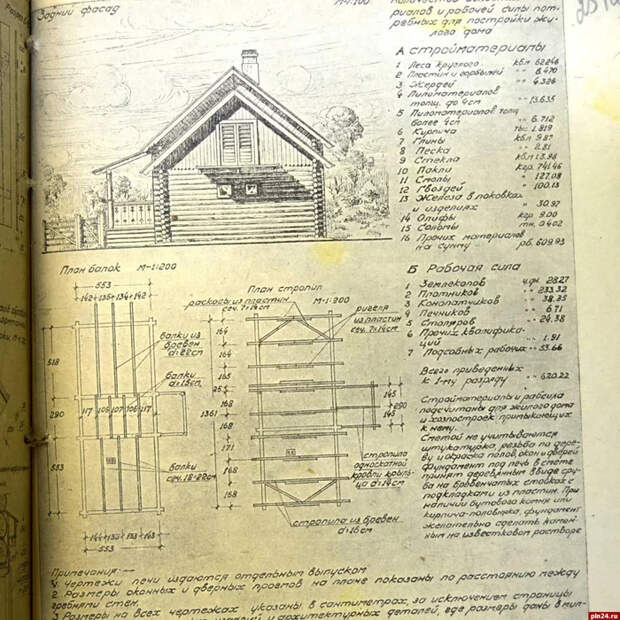 Задний фасад
М-1:100
риалов и рабочей силы пот-
ребных для постройки жи-
лого дома
А Стройматериалы
1 Леса круглого кбм 62.246
2 Пластин и горбылей -"- 8.470
3 Жердей -"- 4.326
4 Пиломатериалов
толщ. до 4см -"- 13.635
5 Пиломатериалов толщ
более 4см -"- 6.712
6 Кирпича тыс. 1.819
7 Глины кбм
8 Песка -"- 2.81
9 Стекла
10 Пакли кгр. 741.46
11 Смолы " 127.08
12 Гвоздей " 100.13
13 Железа в поковках
и изделиях " 30.97
14 Олифы кгр 9.00
15 Сольмы тн. 0.402
16 Прочих материалов
на сумму руб. 609.93
План балок М-1:200
553
142+135+134+142
балки из
бревен
d=22см
балки
d=15см
518
290
553
117 105 107 106 117
балки
сеч. 18×22см
553
План стропил
М-1:200
раскосы из пластин
сеч. 7×14см
ригеля
из пластин
сеч. 7×14см
164
165
165
255
168
1361
168
171
168
168
145
290
145
стропила
односкатной
кровли крыль-
ца d=14см
стропила из бревен
d=16см
Б Рабочая сила
1 Землекопов ч.дн. 28.27
2 Плотников -"- 233.32
3 Конопатчиков -"- 38.35
4 Печников -"- 6.71
5 Столяров -"- 24.38
6 Прочих квалифика-
ций -"- 1.91
7 Подсобных рабочих -"- 53.66
Всего приведенных
к 1-му разряду -"- 620.22
Стройматериалы и рабсила
подсчитаны для жилого дома
и хозпостроек примыкающих
к нему.
Сметой не учитываются
штукатурка, резьба по дере-
ву и окраска полов, окон и дверей
фундамент под печь в смете
принят деревянным в виде сру-
ба на бревенчатых стойках с
подкладками из пластин. При
наличии бутового камня или
кирпича-половняка, фундамент
желательно сделать камен-
ным на известковом растворе
Примечания:—
1. Чертежи печи издаются отдельным выпуском
2. Размеры оконных и дверных проемов на плане показаны по расстоянию между
гребнями стен.
3. Размеры на всех чертежах указаны в сантиметрах, за исключением страницы
и архитектурных деталей, где размеры даны в мил-
pln24.ru